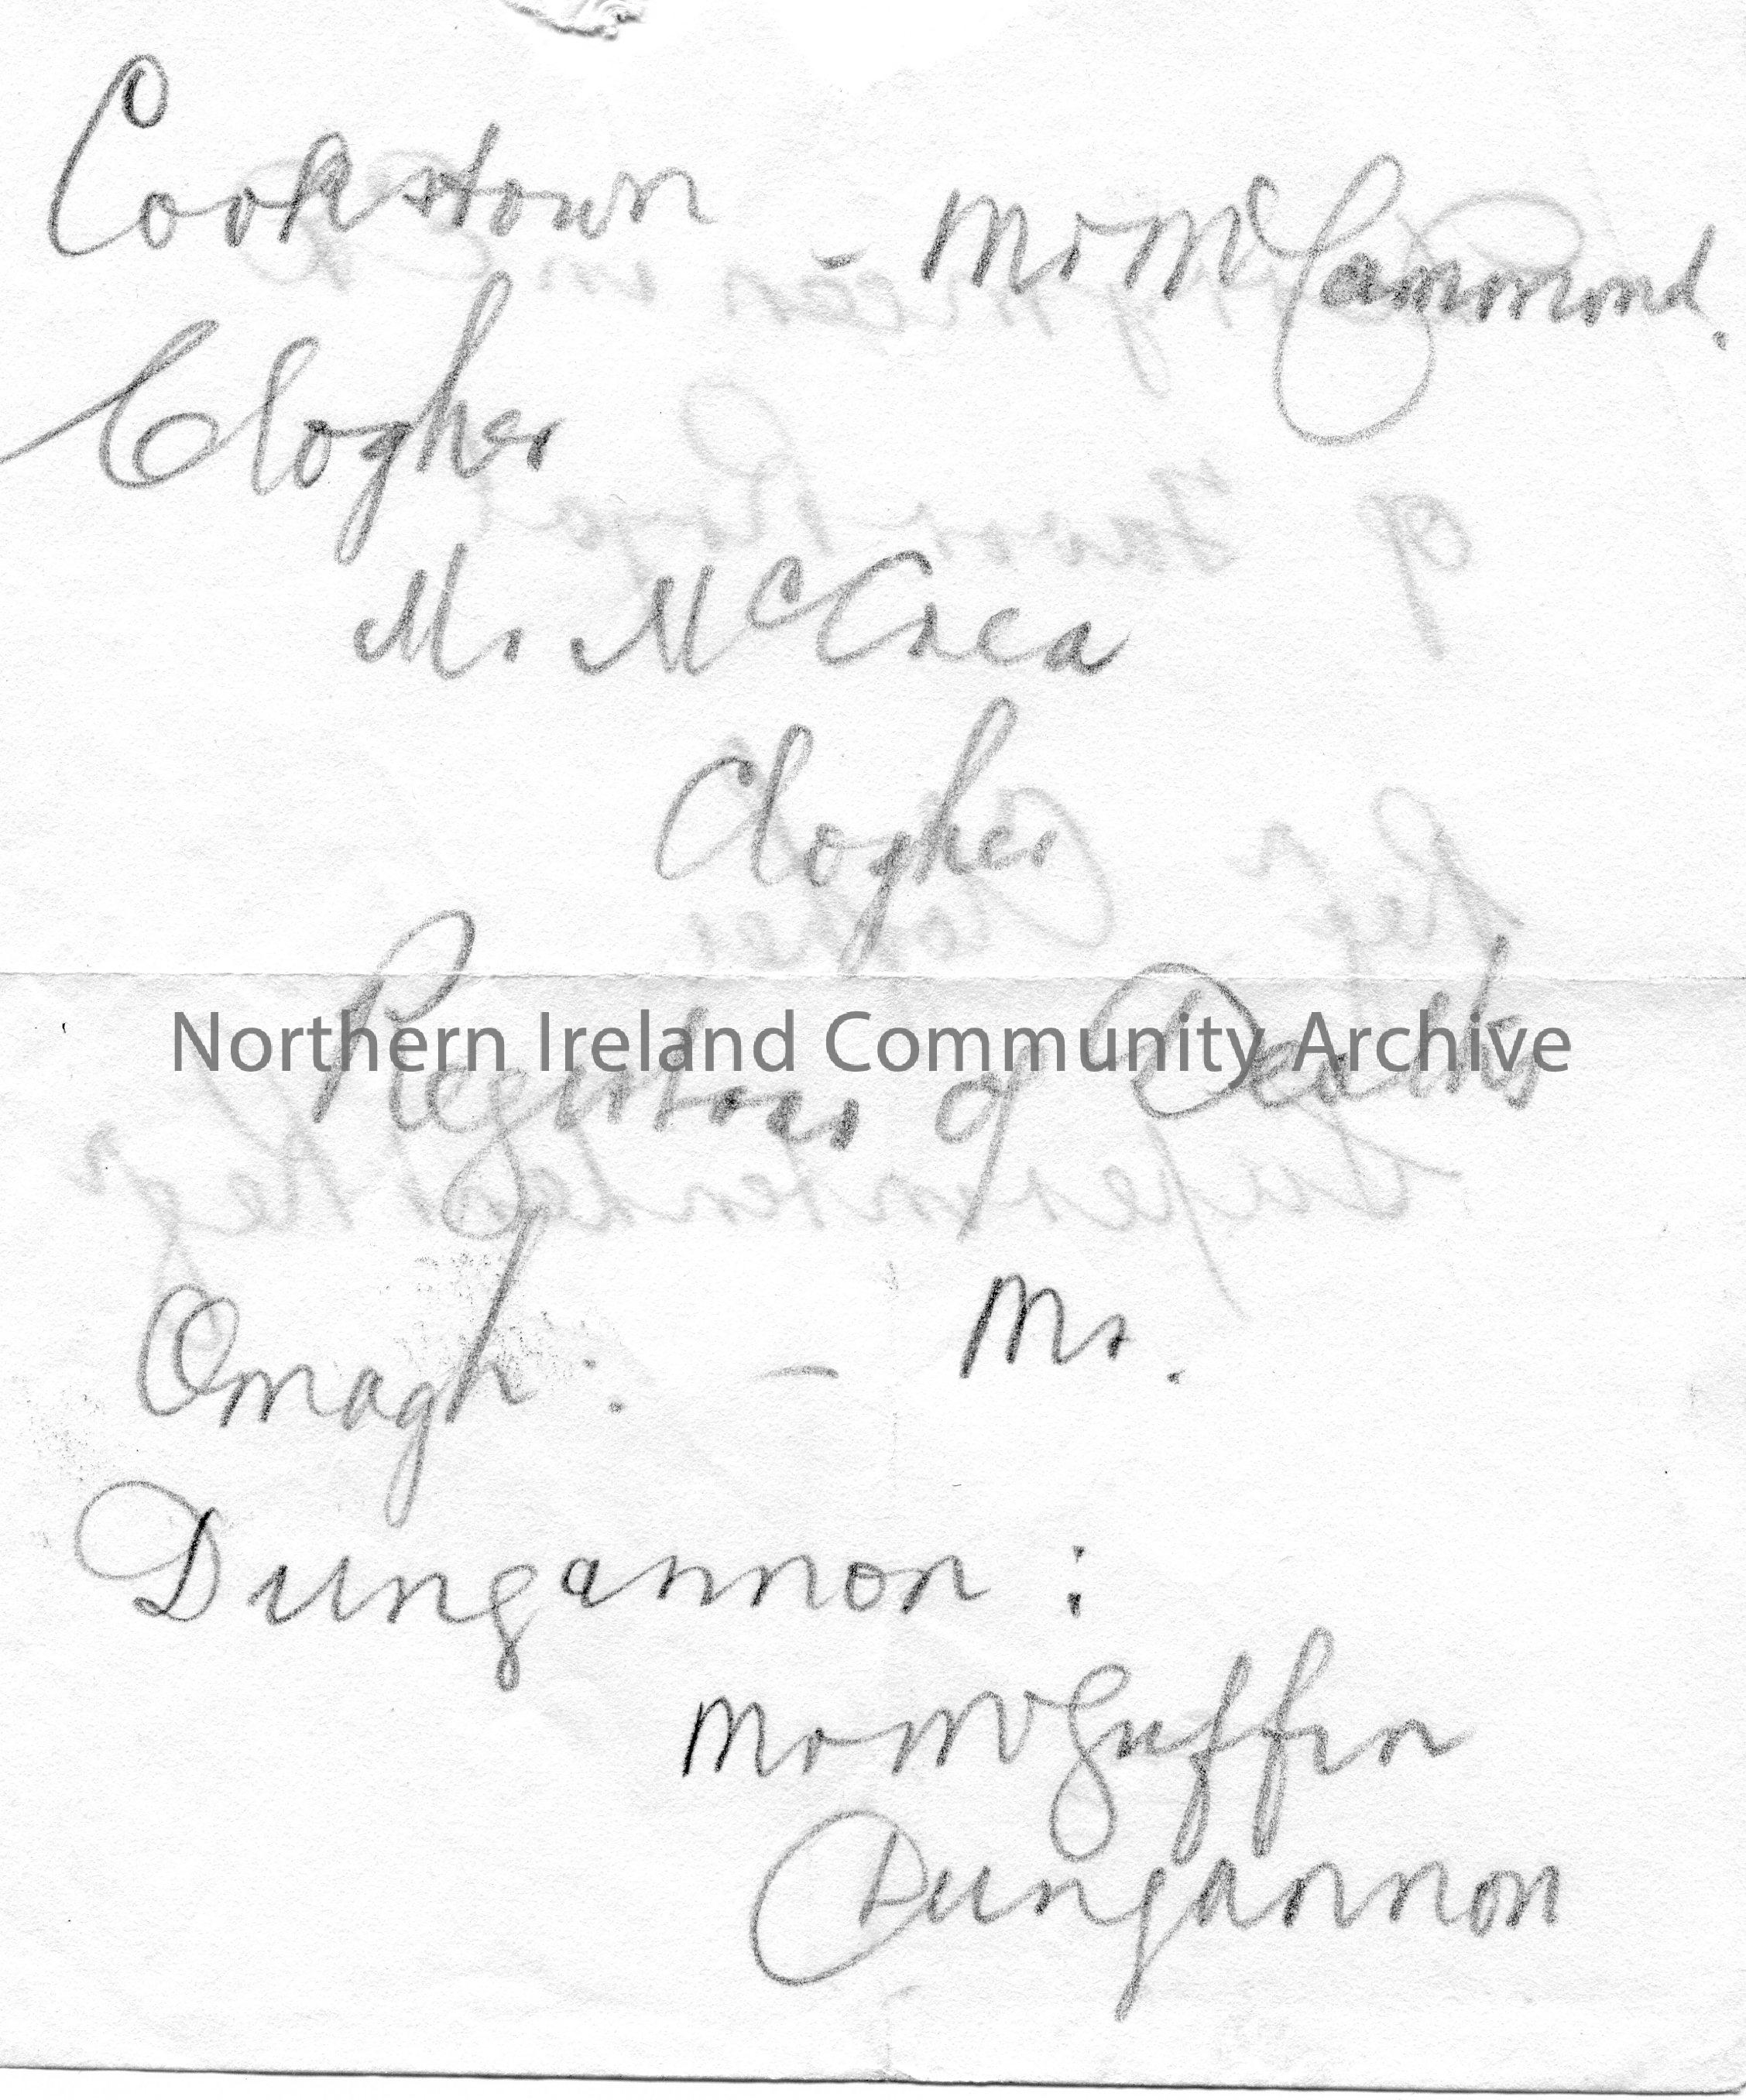 Cookstown - Mr McCammond.
Clogher
Mr. McCrea
Clogher
Northern Ireland Community Archive
Registrar of Deaths
Omagh : - Mr.
Dungannon :
Mr McGuffin
Dungannon